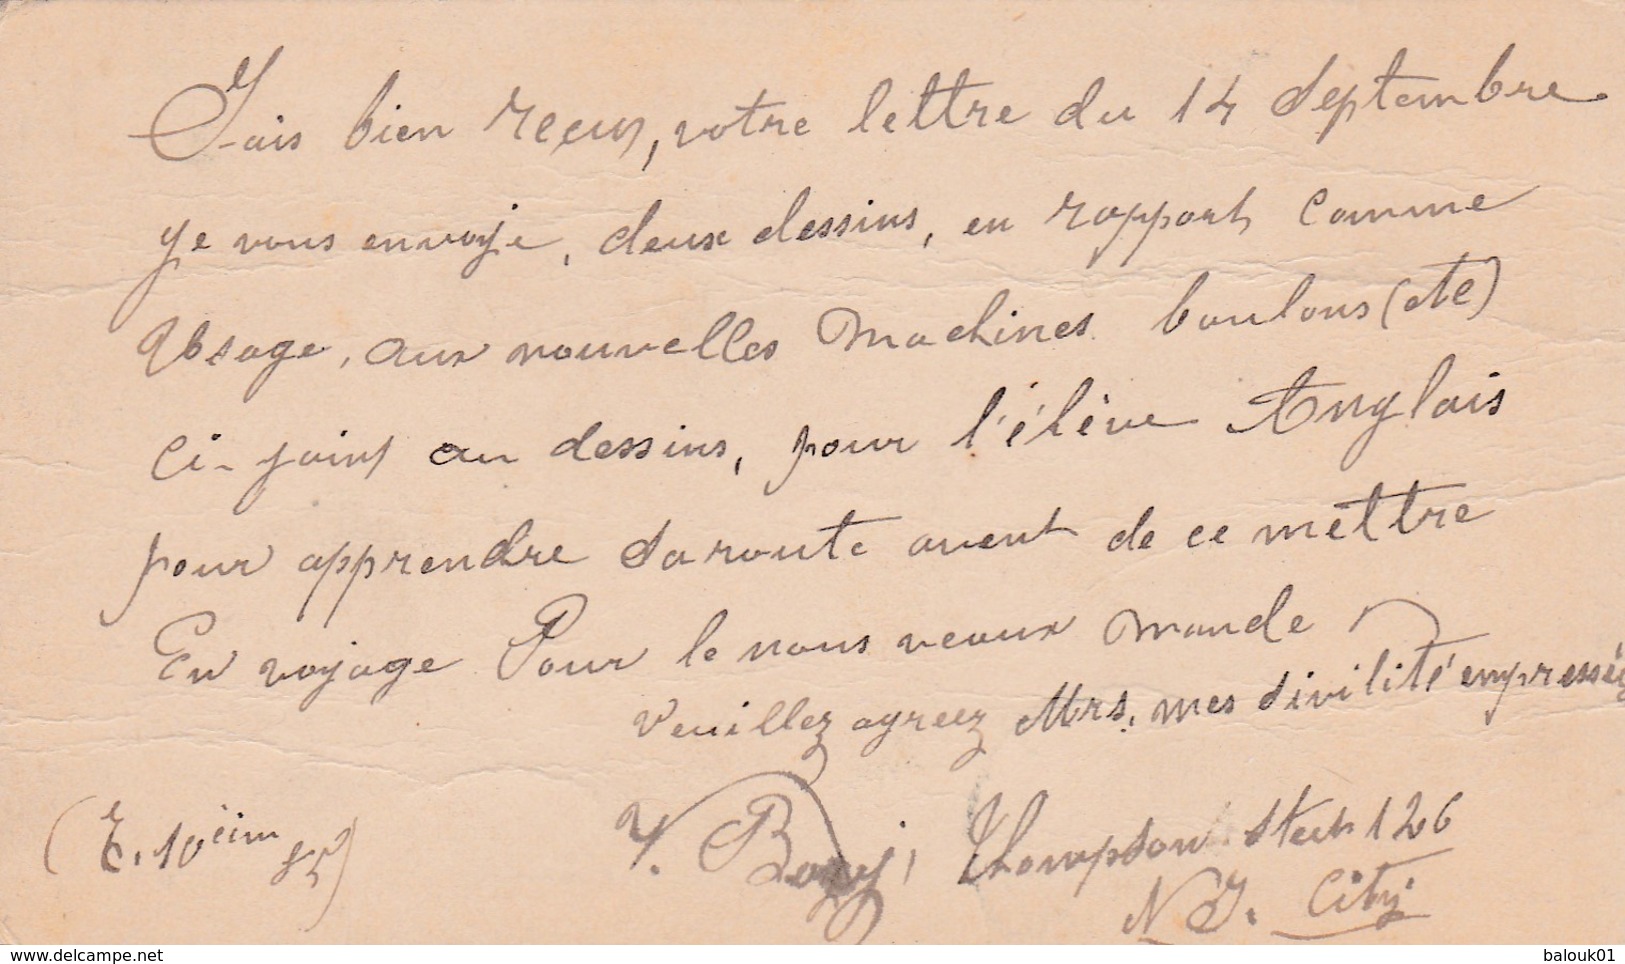 J-ais bien reçus, votre lettre du 14 Septembre
je vous envoye, deux dessins, en rapport comme
Usage, aux nouvelles Machines boulons (ete)
ci-joint au dessins, pour l'élève Anglais
pour apprendre sa route avent de ce mettre
En voyage Pour le nous veaux monde
Veuillez agreez Mrs. mes sivilité empressé
(E. 10eim 85)
V. Thompson Steet 126
N Y. City
delcampe.net
balouk01